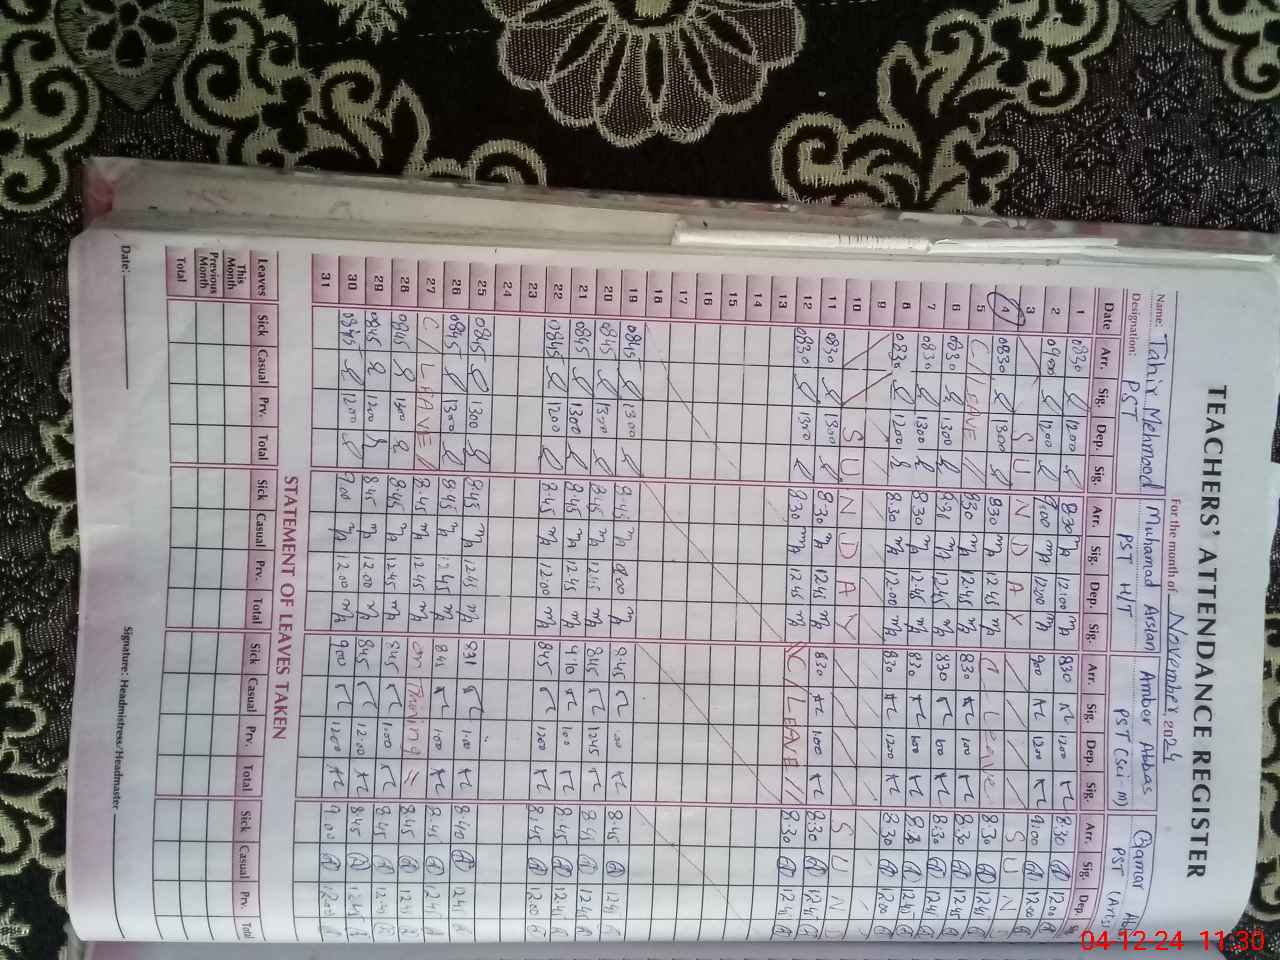 TEACHERS' ATTENDANCE REGISTER
For the month of November 2024
Name: Tahir Mehmood Muhamad Arslan Amber Abbas Qamar
Designation: PST PST H/T PST (Sci-m) PST (Arts)
Date Arr. Sig. Dep. Sig. Arr. Sig. Dep. Sig. Arr. Sig. Dep. Sig. Arr. Sig. Dep.
1 0830 1200 8:30 12:00 830 1200 8:30 1200
2 0900 1200 9:00 1200 900 1200 9:00 1200
3 S U N D A Y S U N
4 0830 1300 830 1245 C Leave 8:30 1245
5 C/LEAVE 830 12:45 830 100 8:30 1245
6 0830 1300 1245 830 100 8:30 1245
7 0830 1300 830 12:45 830 100 1245
8 0830 1200 8:30 12:00 830 1200 8:30 1200
9
10 S U N D A Y S U N D
11 0830 1300 830 1245 830 100 8:30 1245
12 0830 1300 830 1245 C/LEAVE 8:30 1245
13
14
15
16
17
18
19 0845 1300 8:45 8:45 8:45 1245
20 0845 1300 8:45 12:45 845 1245 8:45 1245
21 0845 1300 8:45 12:45 9:10 100 8:45 1245
22 0845 1200 8:45 1200 845 1200 8:45 1200
23
24
25 0845 1300 8:45 1245 831 1:00 8:40 1245
26 0845 1300 8:45 12:45 841 1:00 8:45 1245
27 C LEAVE 8:45 12:45 8:45 1245
28 0845 1300 8:45 12:45 845 1:00 8:45 12:45
29 0845 1200 8:45 12:00 845 12:00 8:45 1245
30 0845 1200 9:00 12:00 900 1200 9:00 1200
31
STATEMENT OF LEAVES TAKEN
Leaves Sick Casual Prv. Total Sick Casual Prv. Total Sick Casual Prv. Total Sick Casual Prv. Total
This Month
Previous Month
Total
Date: Signature: Headmistress/Headmaster
04-12-24 11:30